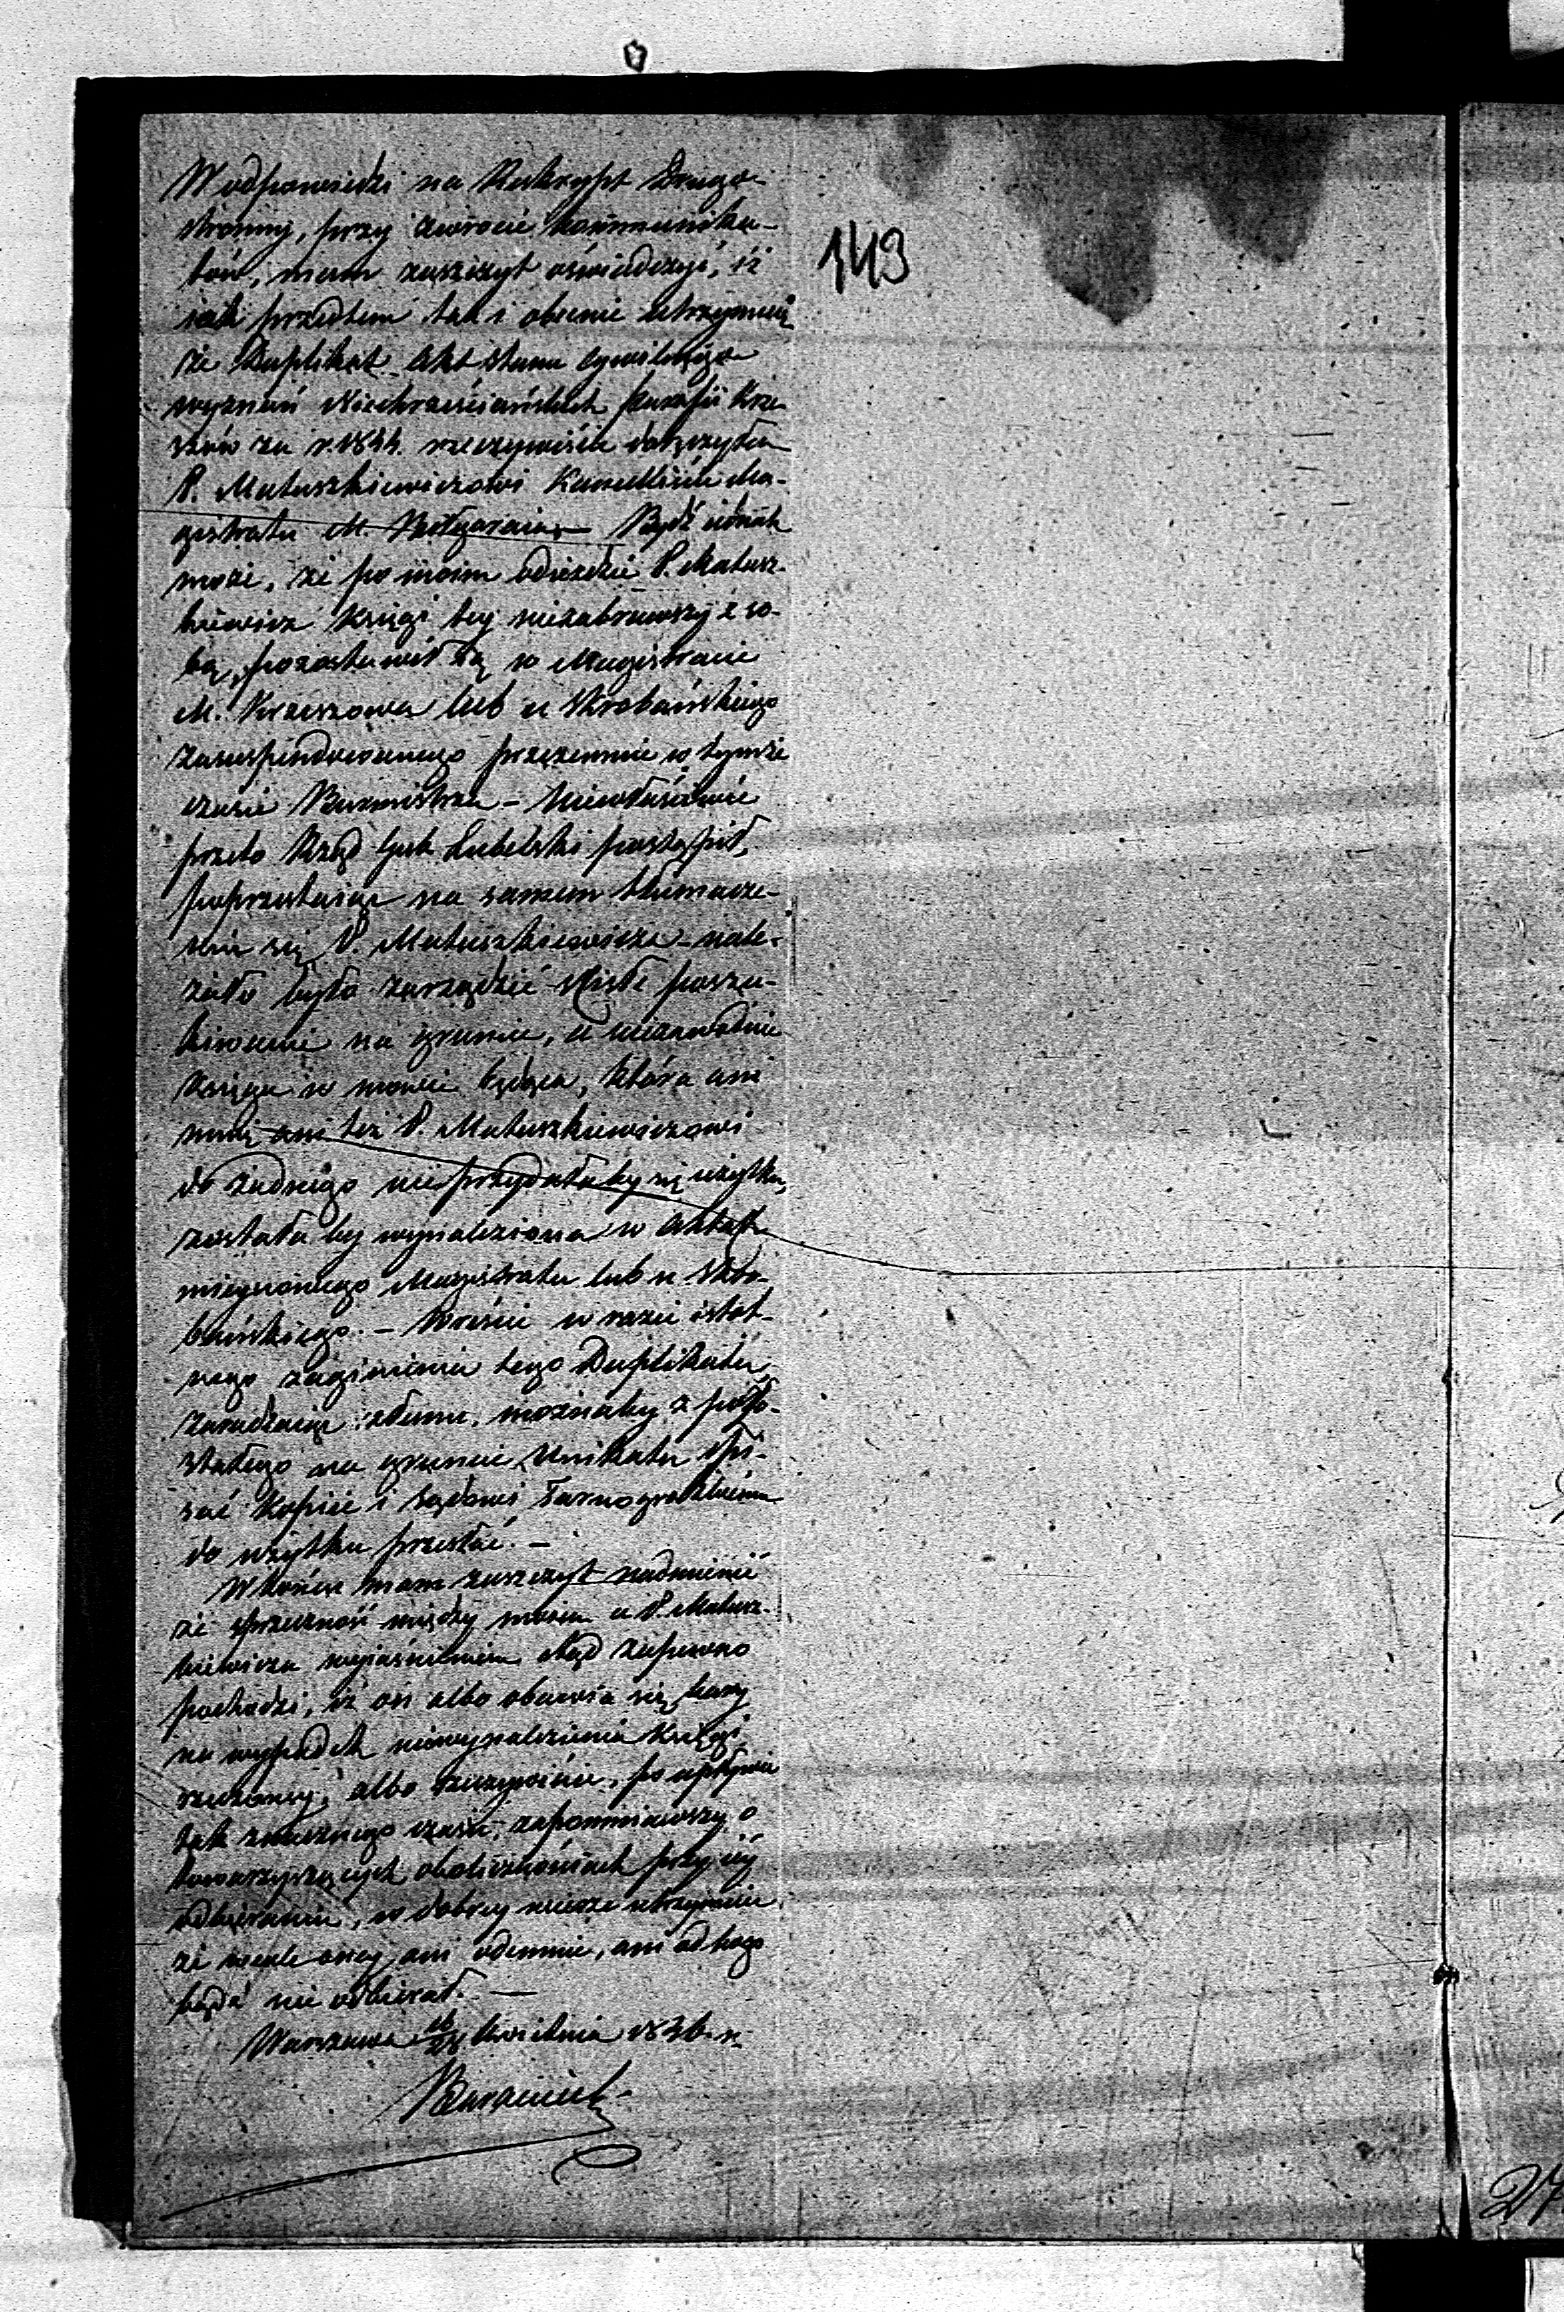 W odpowiedzi na Reskrypt Drugo-
stronny, przy zwrocie kommunika-
tów, mam zaszczyt oświadczyć, iż
jak przedtem tak i obecnie utrzymuię
że Duplikat Akt stanu cywilnego
wyznań Niechrześciańskich parafii Krze-
szów za r. 1844. rzeczywiście doręczyłem
P. Matuszkiewiczowi Kancelliście Ma-
gistratu M. Biłgoraia, — Bydź iednak
może, że po moim odieździe P. Matusz-
kiewicz Księgi tey niezabrawszy z so-
bą, pozostawił ią w Magistracie
M. Krzeszowa lub u Skrobańskiego
zasuspendowanego przezemnie w tymże
czasie Burmistrza — Niewłaściwie
przeto Rząd Gub Lubelski postąpił,
poprzestaiąc na samem tłumacze-
niu się P. Matuszkiewicza — nale-
żało było zarządzić ścisłe poszu-
kiwanie na gruncie, a niezawodnie
Księga w mowie będąca, która ani
mnie ani też P. Matuszkiewiczowi
do żadnego nie przydałaby się użytku,
została by wynaleziona w Aktach
mieyscowego Magistratu lub u Skro-
bańskiego. — Wreście w razie istot-
nego zaginienia tego Duplikatu,
zaradzaiąc złemu, możnaby z pozo-
stałego na gruncie Unikatu spi-
sać Kopiię i Sądowi Tarnogrodzkiemu
do użytku przesłać. —
W końcu mam zaszczyt nadmienić
że sprzeczność między moim a P. Matusz-
kiewicza wyiaśnieniem ztąd zapewno
pochodzi, iż on albo obawia się kary
na wypadek niewynalezienia Księgi
rzeczoney, albo rzeczywiście, po upływie
tak znacznego czasu, zapomniawszy o
towarzyszących okolicznościach przy iéy
odbieraniu, w dobrey wierze utrzymuie
że wcale oney ani odemnie, ani od kogo
bądź nie odbierał. —
Warszawa 16/28 Kwietnia 1846 r.
143
27